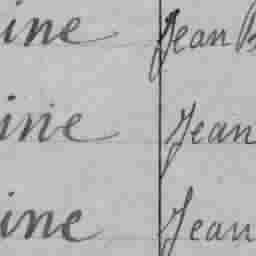 ine Jean B
ine Jean
ine Jean